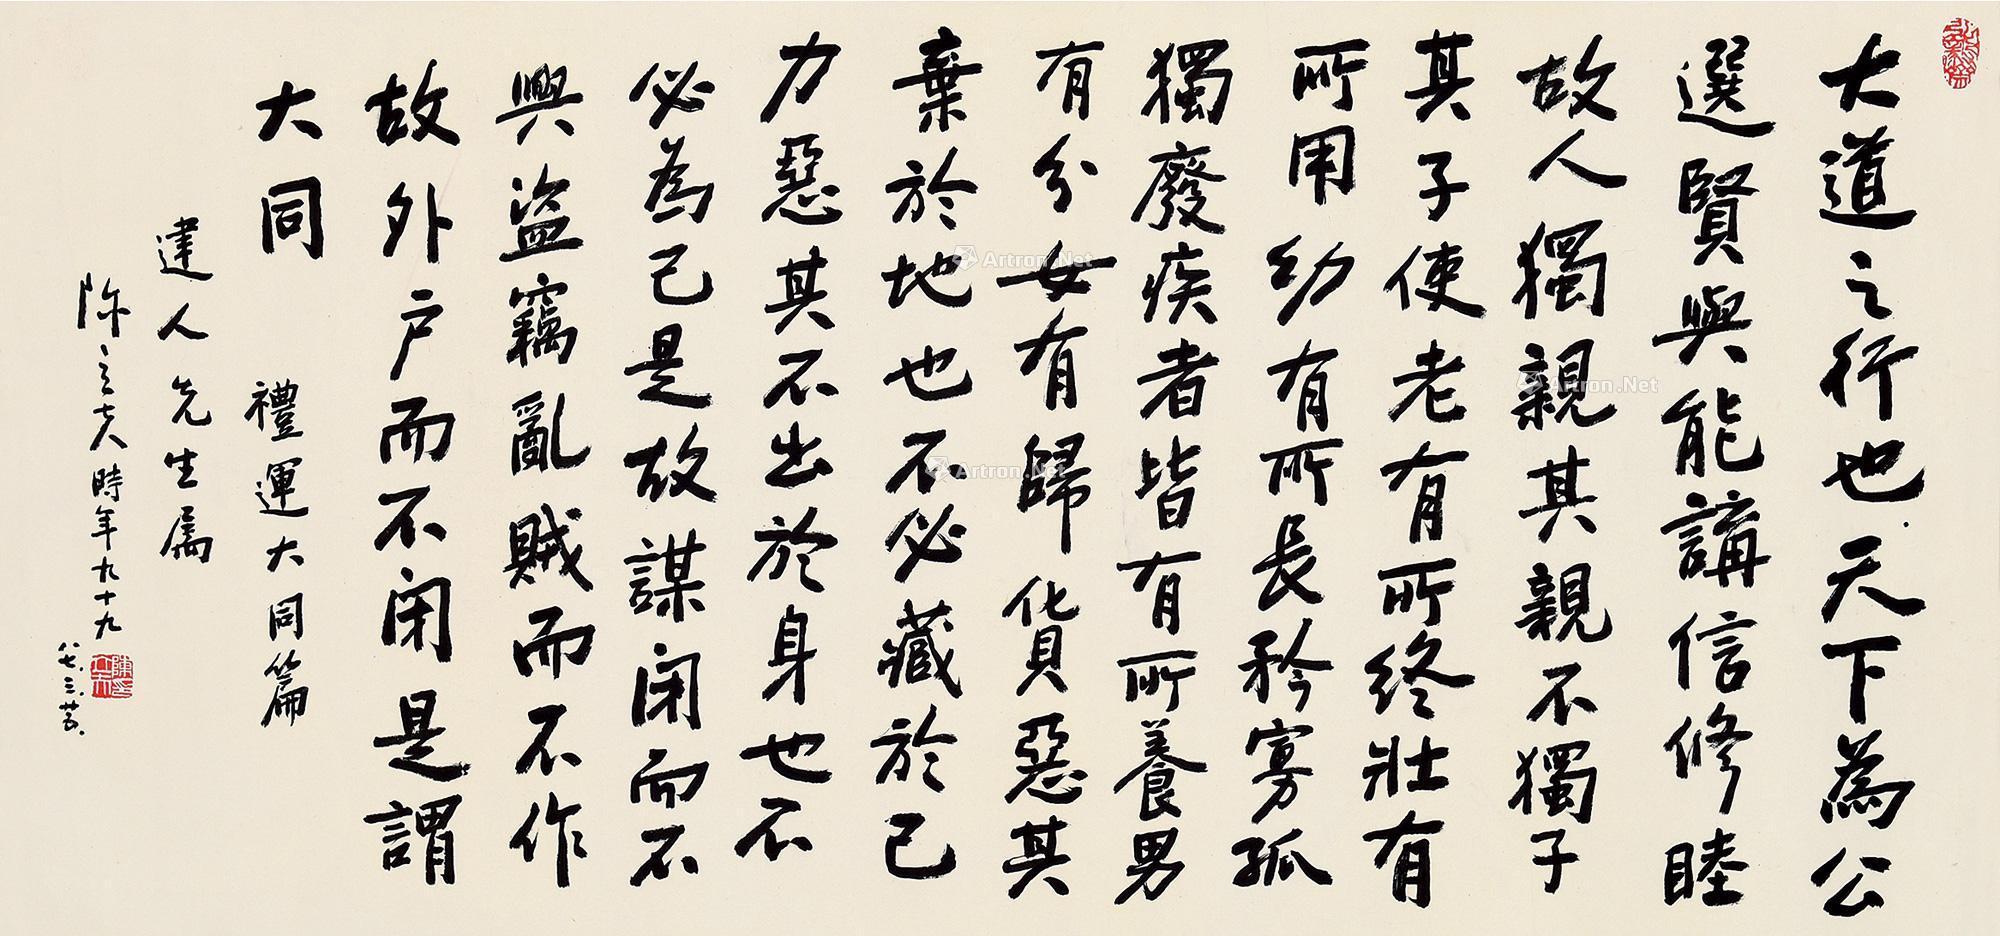 大道之行也天下為公
選賢與能講信修睦
故人獨親其親不獨子
其子使老有所終壯有
所用幼有所長矜寡孤
獨廢疾者皆有所養男
有分女有歸貨惡其
棄於地也不必藏於己
力惡其不出於身也不
必為己是故謀閉而不
興盜竊亂賊而不作
故外户而不閉是謂
大同 禮運大同篇
建人先生属
陳立夫時年九十九
八七.三.
Artron.Net
Artron.Net
Artron.Net